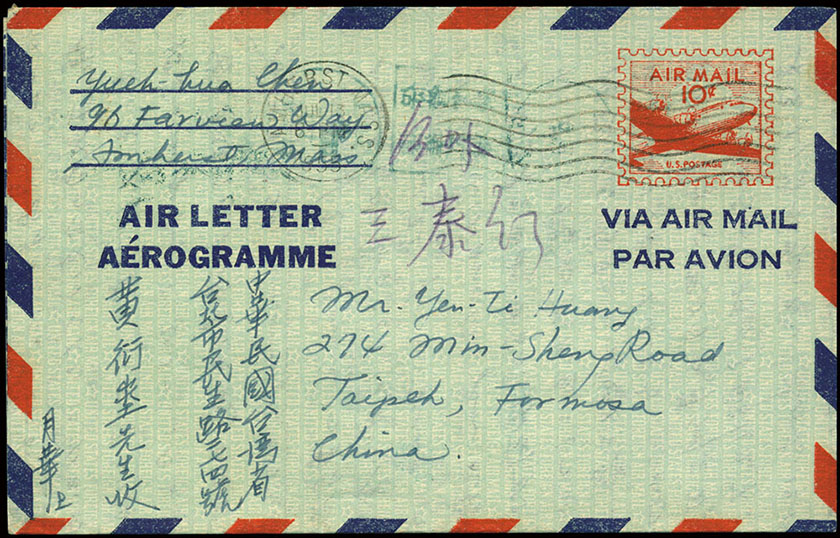 Yueh-hua Chen
96 Farview Way
Amherst, Mass
AIR MAIL
10¢
U.S. POSTAGE
AIR LETTER
AÉROGRAMME
VIA AIR MAIL
PAR AVION
三泰行
Mr. Yen-Ti Huang
274 Min-Sheng Road
Taipeh, Formosa
China.
中華民國台灣省
台北市民生路二七四號
黃衍先生收
月華上